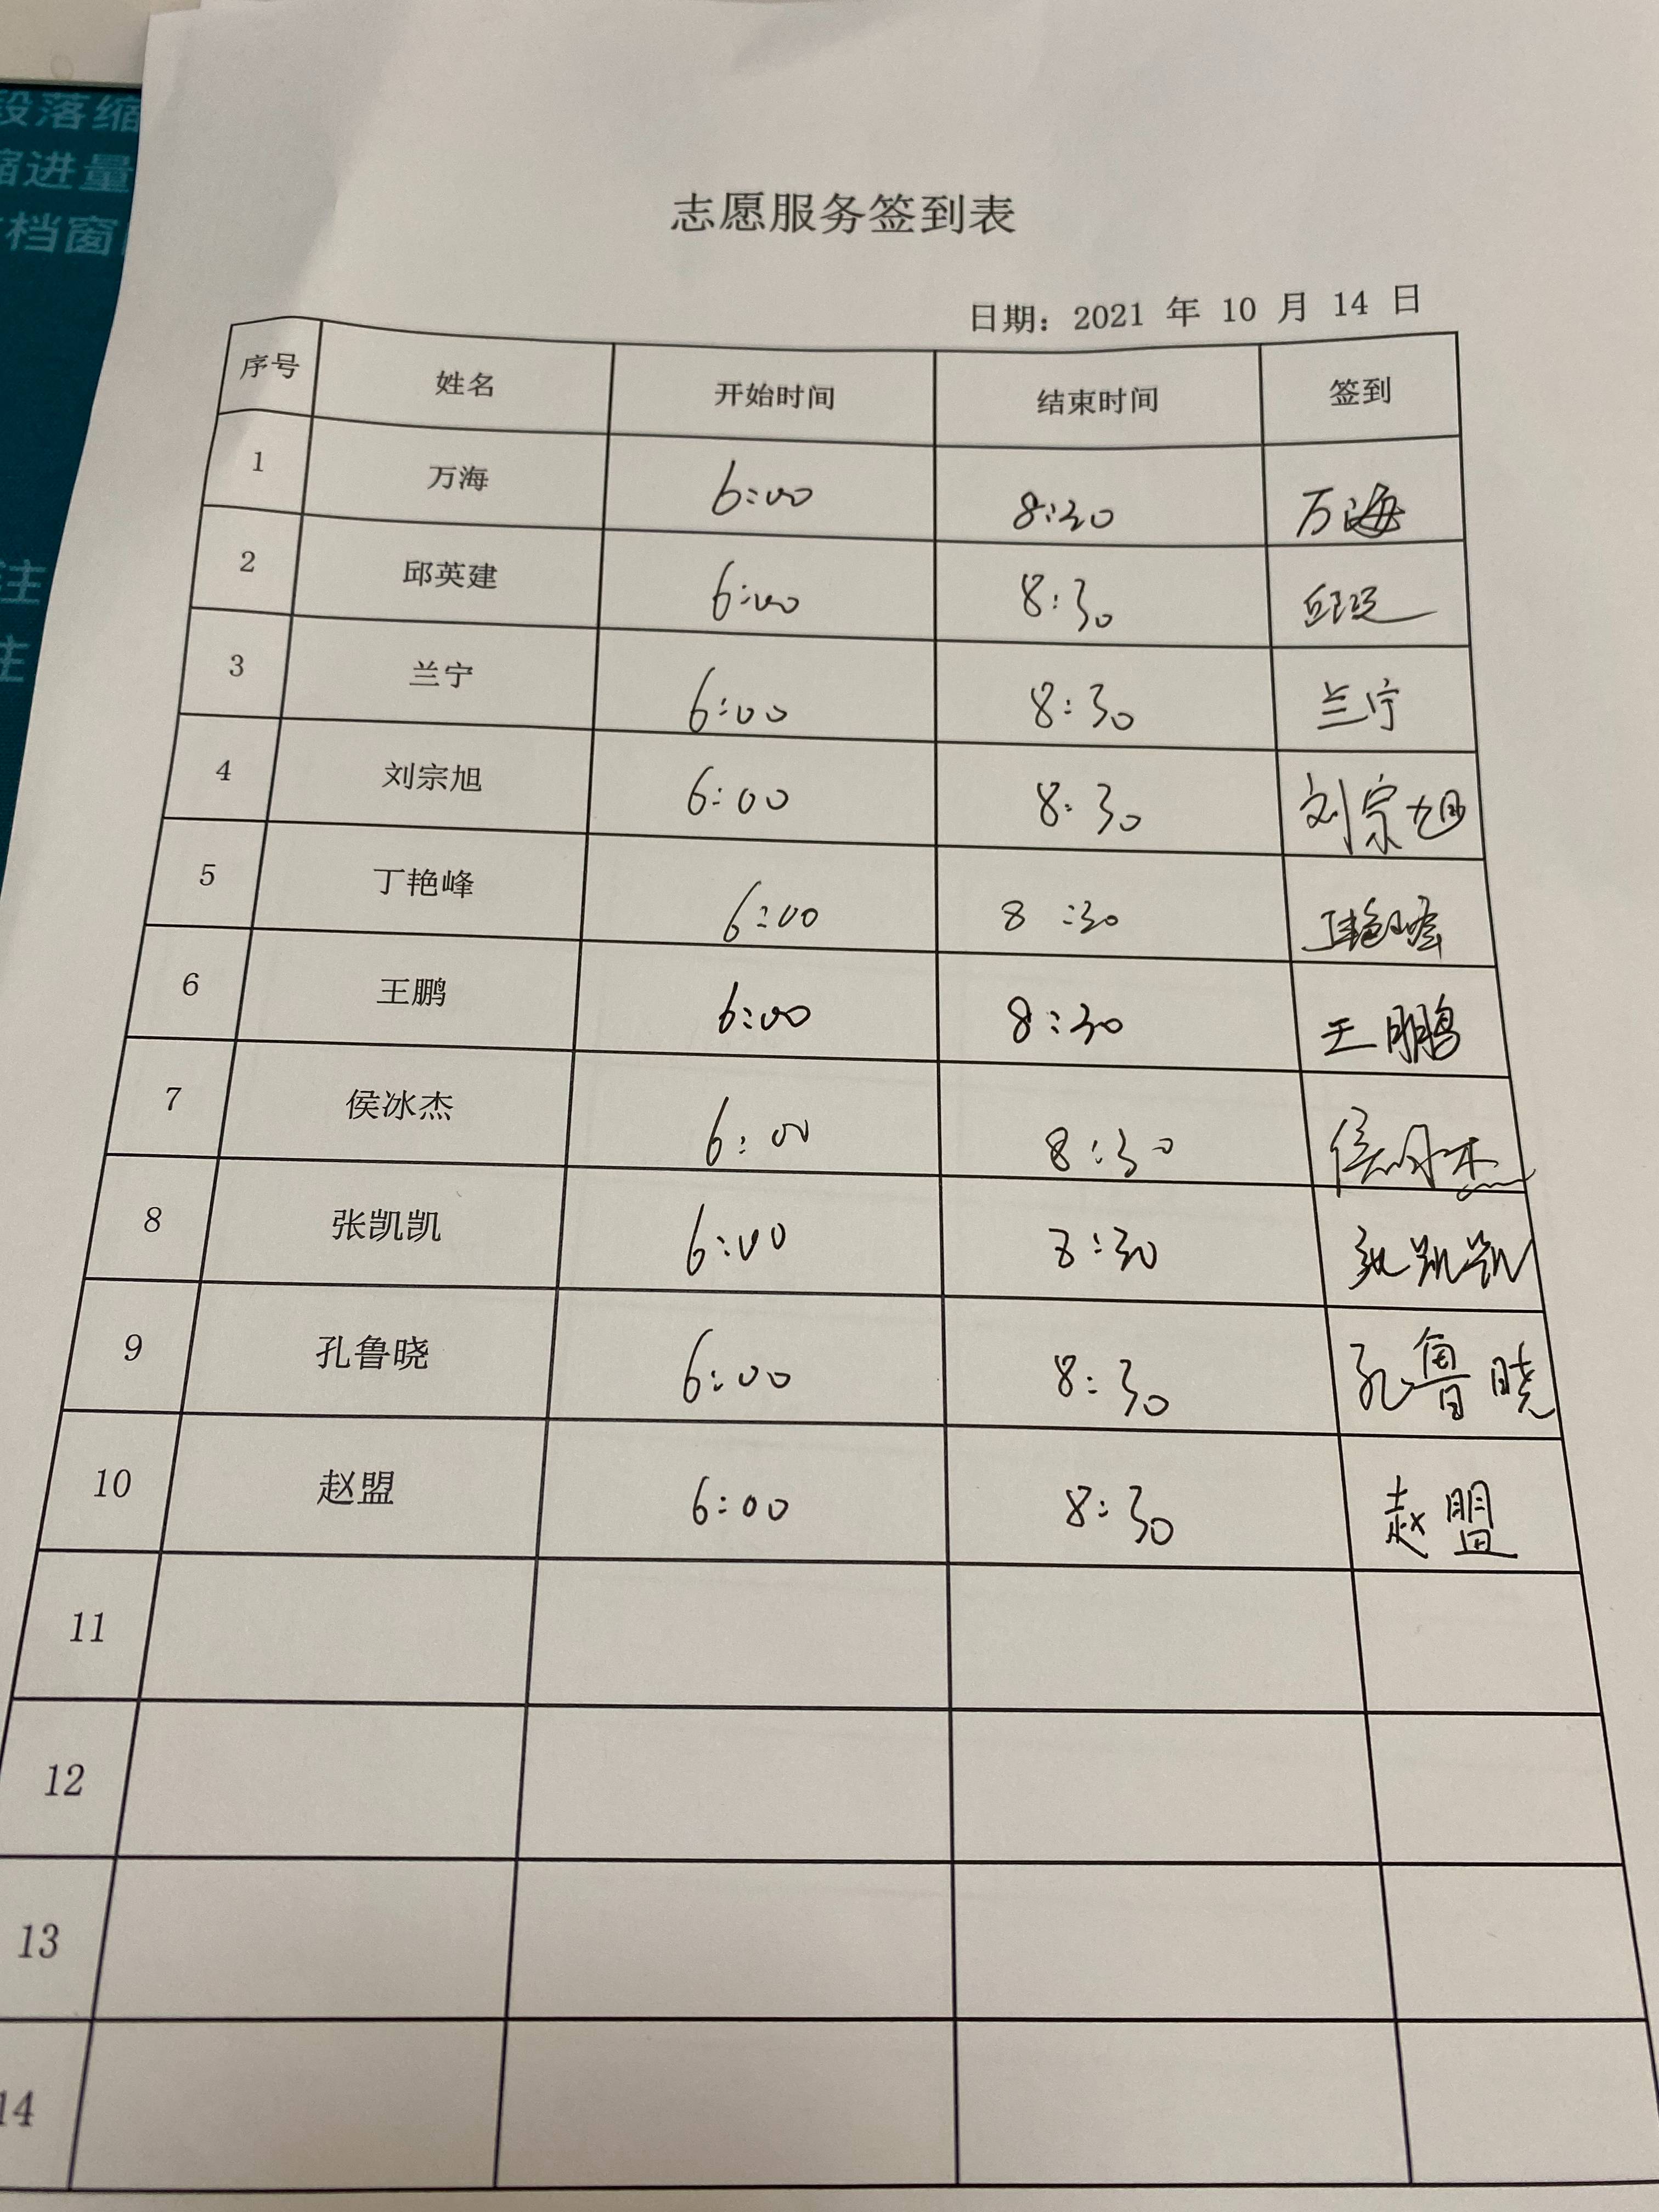 段落缩
缩进量
档窗
注
注
志愿服务签到表
日期：2021 年 10 月 14 日
序号 姓名 开始时间 结束时间 签到
1 万海 6:00 8:30 万海
2 邱英建 6:00 8:30
3 兰宁 6:00 8:30 兰宁
4 刘宗旭 6:00 8:30 刘宗旭
5 丁艳峰 6:00 8:30 丁艳峰
6 王鹏 6:00 8:30 王鹏
7 侯冰杰 6:00 8:30 侯冰杰
8 张凯凯 6:00 8:30 张凯凯
9 孔鲁晓 6:00 8:30 孔鲁晓
10 赵盟 6:00 8:30 赵盟
11
12
13
14